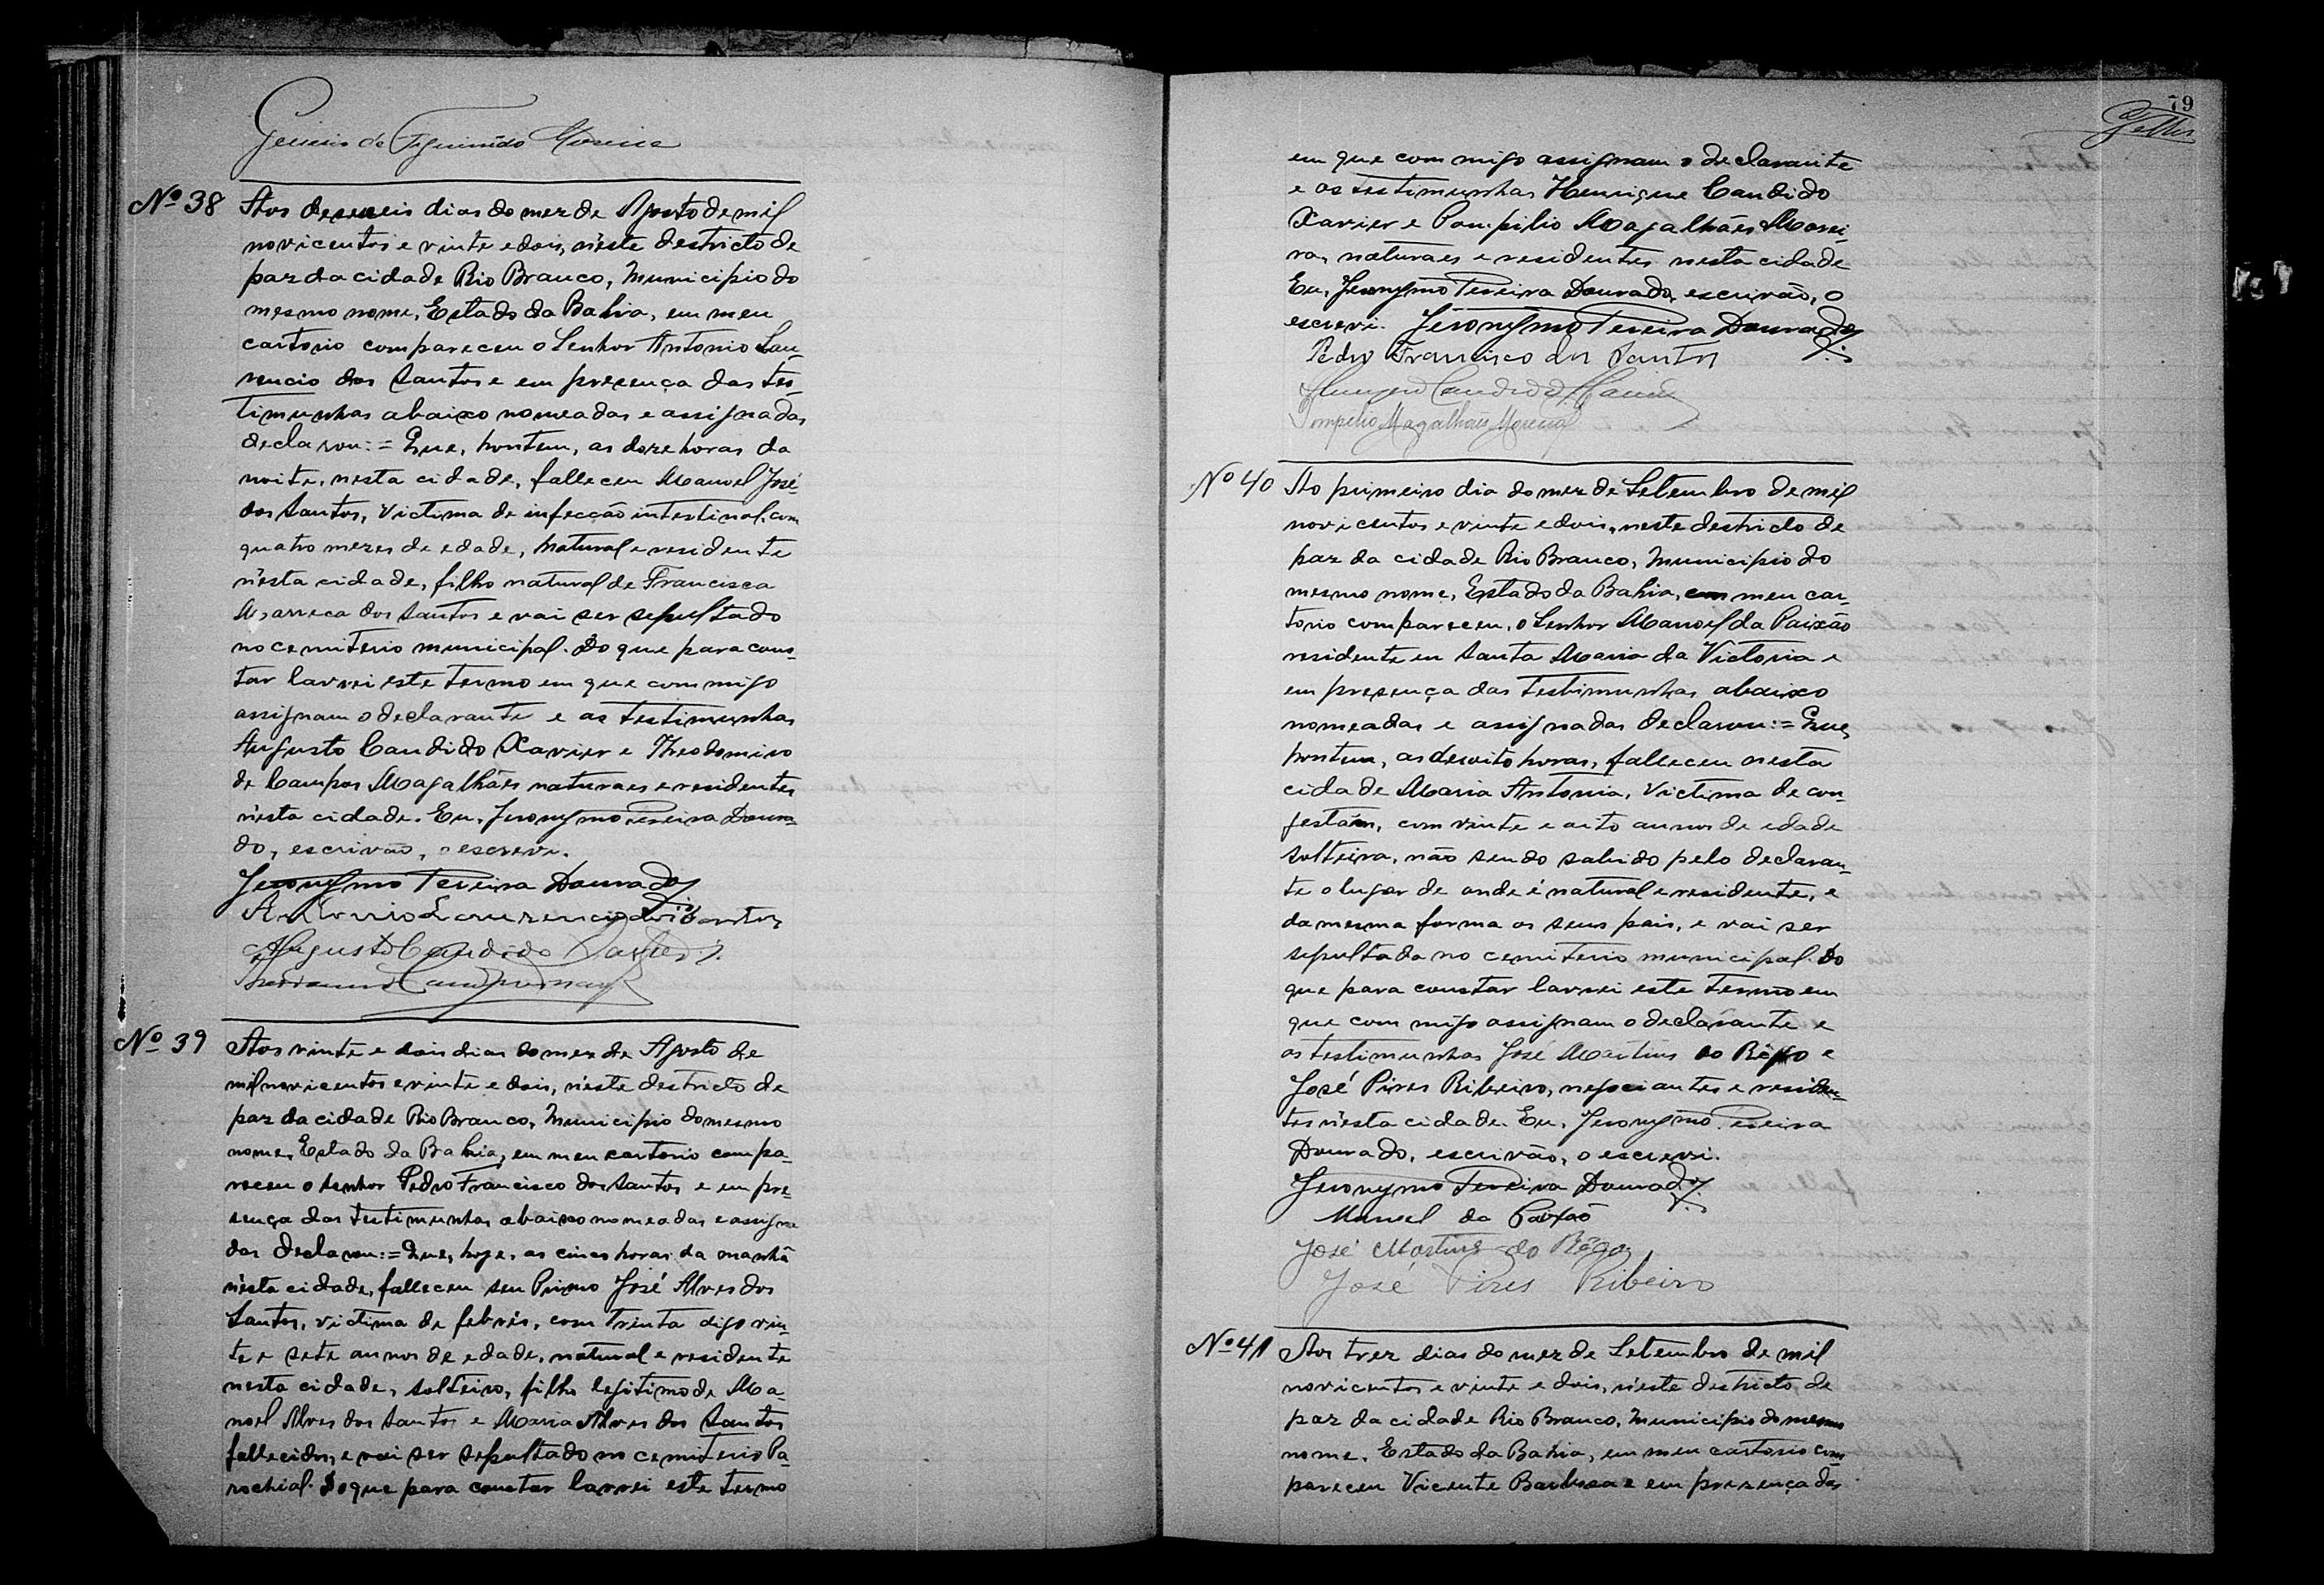 Nº 38
Aos deseseis dias do mez de Agosto de mil
novicentos e vinte e dois, n'este destricto de
paz da cidade Rio Branco, Municipio do
mesmo nome, Estado da Bahia, em meu
cartorio compareceu o Senhor Antonio Lau-
rencio dos Santos e em presença das tes-
timunhas abaixo nomeadas e assignadas
declarou:= Que, hontem, as doze horas da
noite, nesta cidade, falleceu Manoel José
dos Santos, victima de infecção intestinal, com
quatro mezes de edade, natural e residente
n'esta cidade, filho natural de Francisca
dos Santos e vai ser sepultado
no cemiterio municipal. Do que para cons-
tar larvei este termo em que commigo
assignam o declarante e as testimunhas
Augusto Candido Xavier e Theodomiro
de Campos Magalhães naturaes e residentes
n'esta cidade. Eu, Jeronymo Pereira Doura-
do, escrivão, o escrevi.
Jeronymo Pereira Dourado
Antonio Laurencio dos Santos
Augusto Candido Xavier
Nº 39
Aos vinte e dois dias do mez de Agosto de
mil novicentos e vinte e dois, n'este destricto de
paz da cidade Rio Branco, Municipio do mesmo
nome, Estado da Bahia, em meu cartorio compa-
receu o Senhor Pedro Francisco dos Santos e em pre-
sença das testimunhas abaixo nomeadas e assigna
das declarou:= Que, hoje, as cinco horas da manhã
n'esta cidade, falleceu seu Primo José Alves dos
Santos, victima de febres, com trinta digo vin-
te e sete annos de edade, natural e residente
nesta cidade, solteiro, filho legitimo de Ma-
noel Alves dos Santos e Maria Alves dos Santos
fallecidos, e vai ser sepultado no cemiterio Pa-
rochial. Do que para constar larvei este termo
79
em que commigo assignam o declarante
e as testimunhas Henrique Candido
Xavier e Pompilio Magalhães Morei-
ra, naturaes e residentes nesta cidade
Eu, Jeronymo Pereira Dourado, escrivão, o
escrevi. Jeronymo Pereira Dourado
Pedro Francisco dos Santos
Pompilio Magalhães Moreira
Nº 40
Ao primeiro dia do mez de Setembro de mil
novicentos e vinte e dois, neste destricto de
paz da cidade Rio Branco, Municipio do
mesmo nome, Estado da Bahia, em meu car-
torio compareceu, o Senhor Manoel da Paixão
residente em Santa Maria da Victoria e
em presença das testimunhas abaixo
nomeadas e assignadas declarou:= Que,
hontem, as desoito horas, falleceu nesta
cidade Maria Antonia, victima de con-
gestão, com vinte e oito annos de edade
solteira, não sendo sabido pelo declaran-
te o lugar de onde é natural e residente, e
da mesma forma os seus pais, e vai ser
sepultada no cemiterio municipal. Do
que para constar larvei este termo em
que commigo assignam o declarante e
as testimunhas José Martins do Rêgo e
José Pires Ribeiro, negociantes e residen-
tes n'esta cidade. Eu, Jeronymo Pereira
Dourado, escrivão, o escrevi.
Jeronymo Pereira Dourado
Manoel da Paixão
José Martins do Rêgo
José Pires Ribeiro
Nº 41
Aos trez dias do mez de Setembro de mil
novicentos e vinte e dois, n'este destricto de
paz da cidade Rio Branco, Municipio do mesmo
nome, Estado da Bahia, em meu cartorio com
pareceu Vicente Barbosa e em presença das